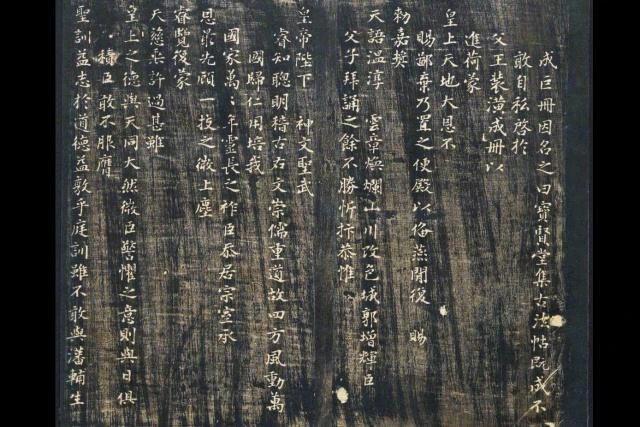 成巨冊因名之曰寶賢堂集古法帖既成不
敢自私啓於
父王裝潢成冊以
進荷蒙
皇上天地大恩不
賜鄙棄乃置之便殿以俻燕閒復 賜
勑嘉奬
天語溫淳 雲章煥爛山川改色城郭增輝臣
父子拜誦之餘不勝忻抃恭惟
皇帝陛下 神文聖武
睿知聰明稽古右文崇儒重道故四方風動萬
國歸仁用培我
國家萬〻年靈長之祚臣忝居宗室承
恩荷光顧一技之微上塵
睿覽後蒙
天慈柔許過甚雖
皇上之德與天同大然微臣警懼之意則與日俱
積臣敢不服膺
聖訓益志於道德益敦乎庭訓雖不敢與藩輔生